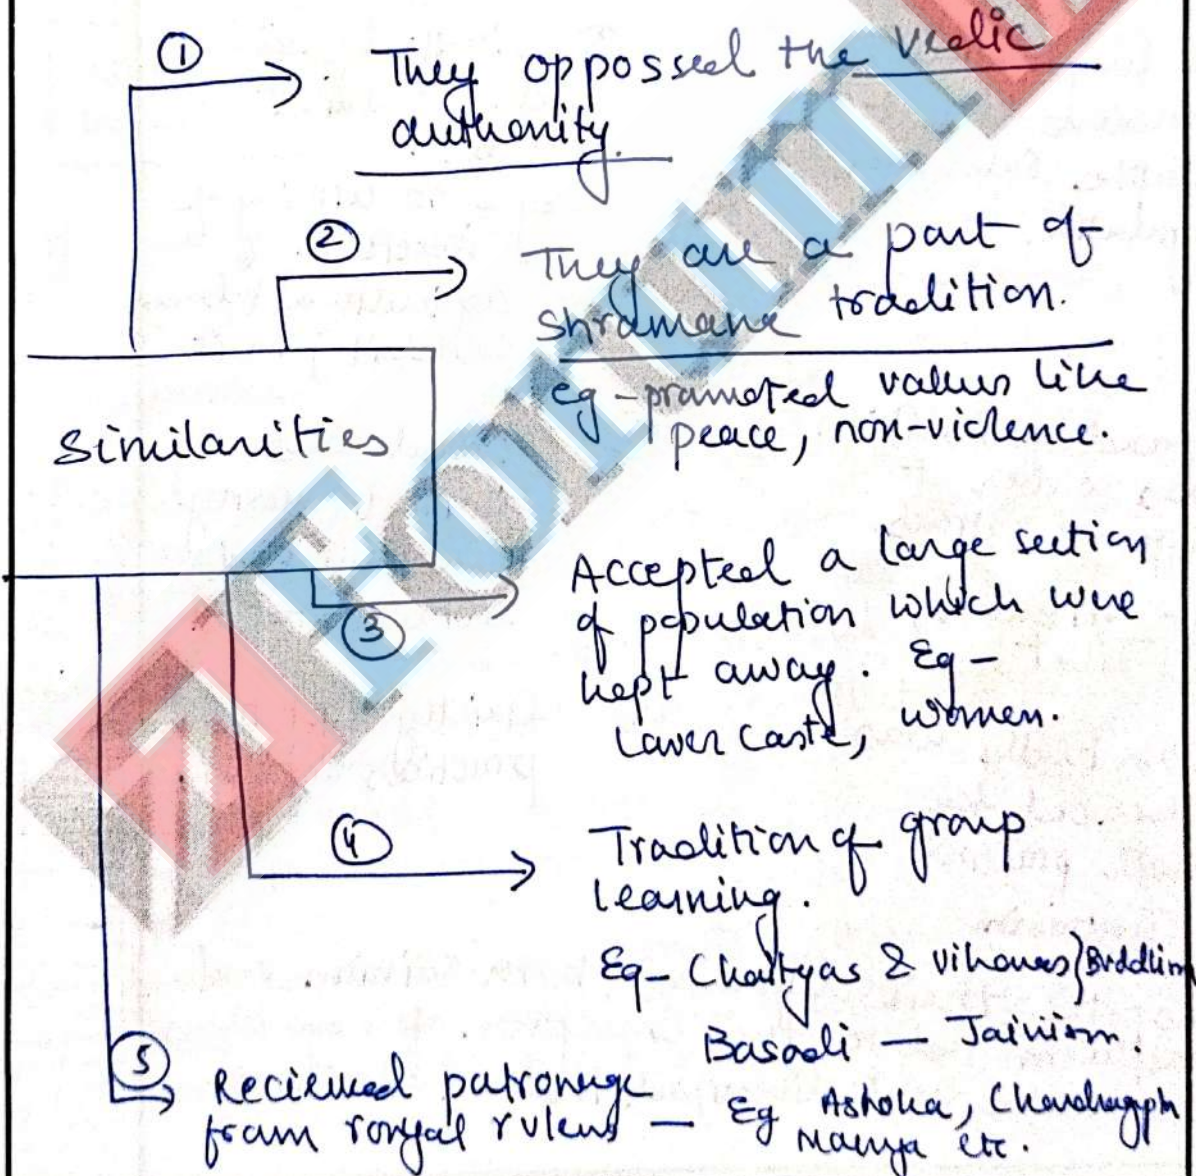 ① They oppossed the Vedic
authority.
② They are a part of
shramana tradition.
eg - promoted values like
peace, non-violence.
Similarities
③ Accepted a large section
of population which were
kept away. Eg -
Lower Caste, women.
④ Tradition of group
learning.
Eg - Chaityas & viharas } Buddhism
Basadi — Jainism.
⑤ Recieved patronage
from royal rulers — Eg Ashoka, Chandragupta
Maurya etc.
Forum